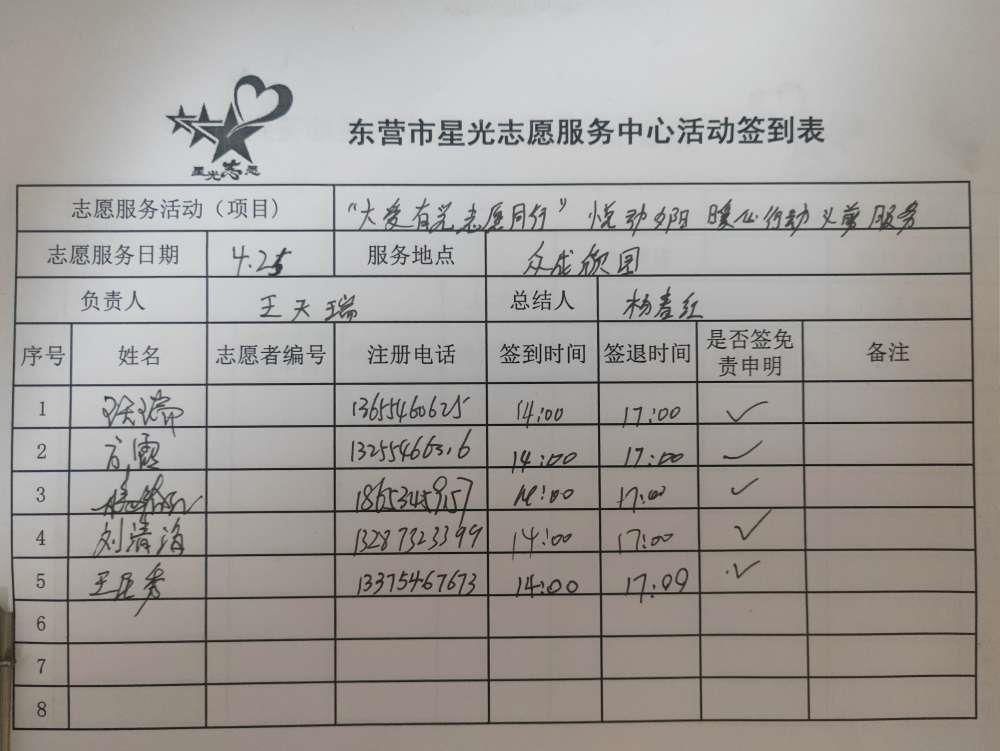 星光志愿
东营市星光志愿服务中心活动签到表
志愿服务活动（项目） “大爱有光志愿同行” 悦动夕阳 暖心行动 义剪服务
志愿服务日期 4.25 服务地点 众成颐园
负责人 王天瑞 总结人 杨春红
序号 姓名 志愿者编号 注册电话 签到时间 签退时间 是否签免责申明 备注
1 13655460625 14:00 17:00 ✓
2 方霞 14:00 17:00 ✓
3 18653459157 14:00 17:00 ✓
4 刘清海 13287323399 14:00 17:00 ✓
5 王正秀 13375467673 14:00 17:00 ✓
6
7
8